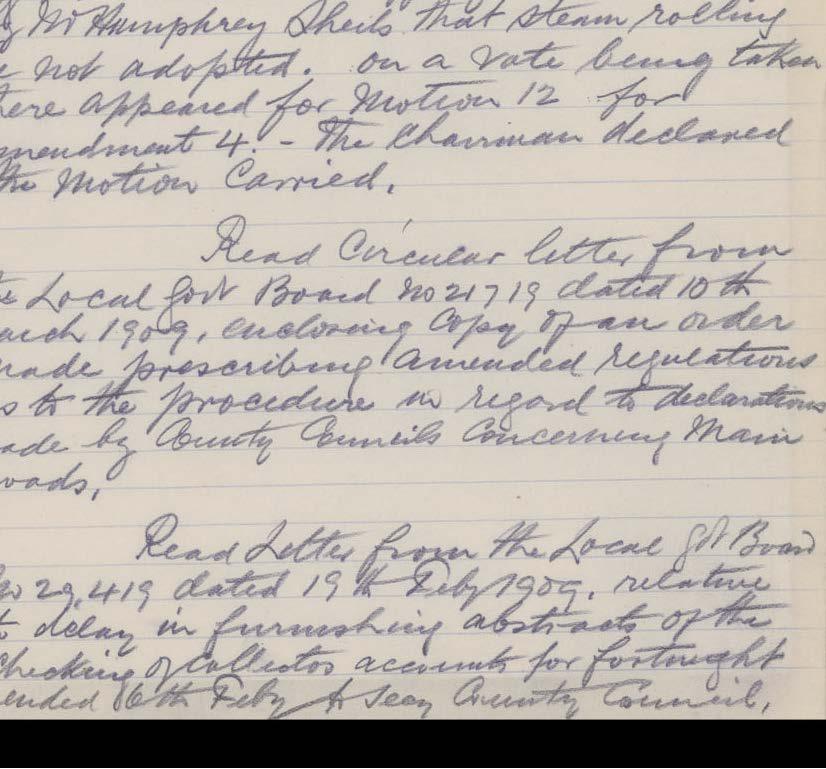 Mr Humphrey Sheils that steam rolling
e not adopted. on a vote being taken
here appeared for Motion 12 for
mendment 4. - The Chairman declared
the Motion Carried.
Read Circular letter from
Local Govt Board No 21719 dated 10th
arch 1909, enclosing Copy of an order
made prescribing amended regulations
s to the procedure in regard to declarations
ade by County Councils Concerning Main
oads,
Read Letter from the Local Govt Board
No 29,419 dated 19th Feby 1909, relative
to delay in furnishing abstracts of the
Checking of Collectors accounts for fortnight
ended 6th Feby County Council,